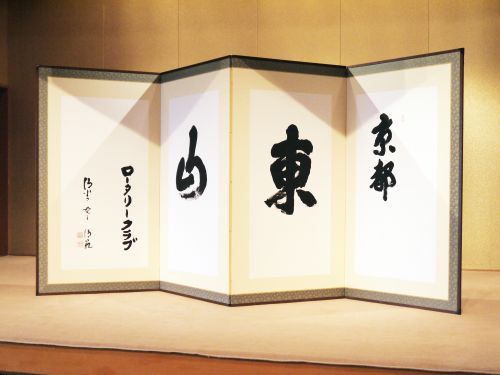 京都
東
山
ロータリークラブ